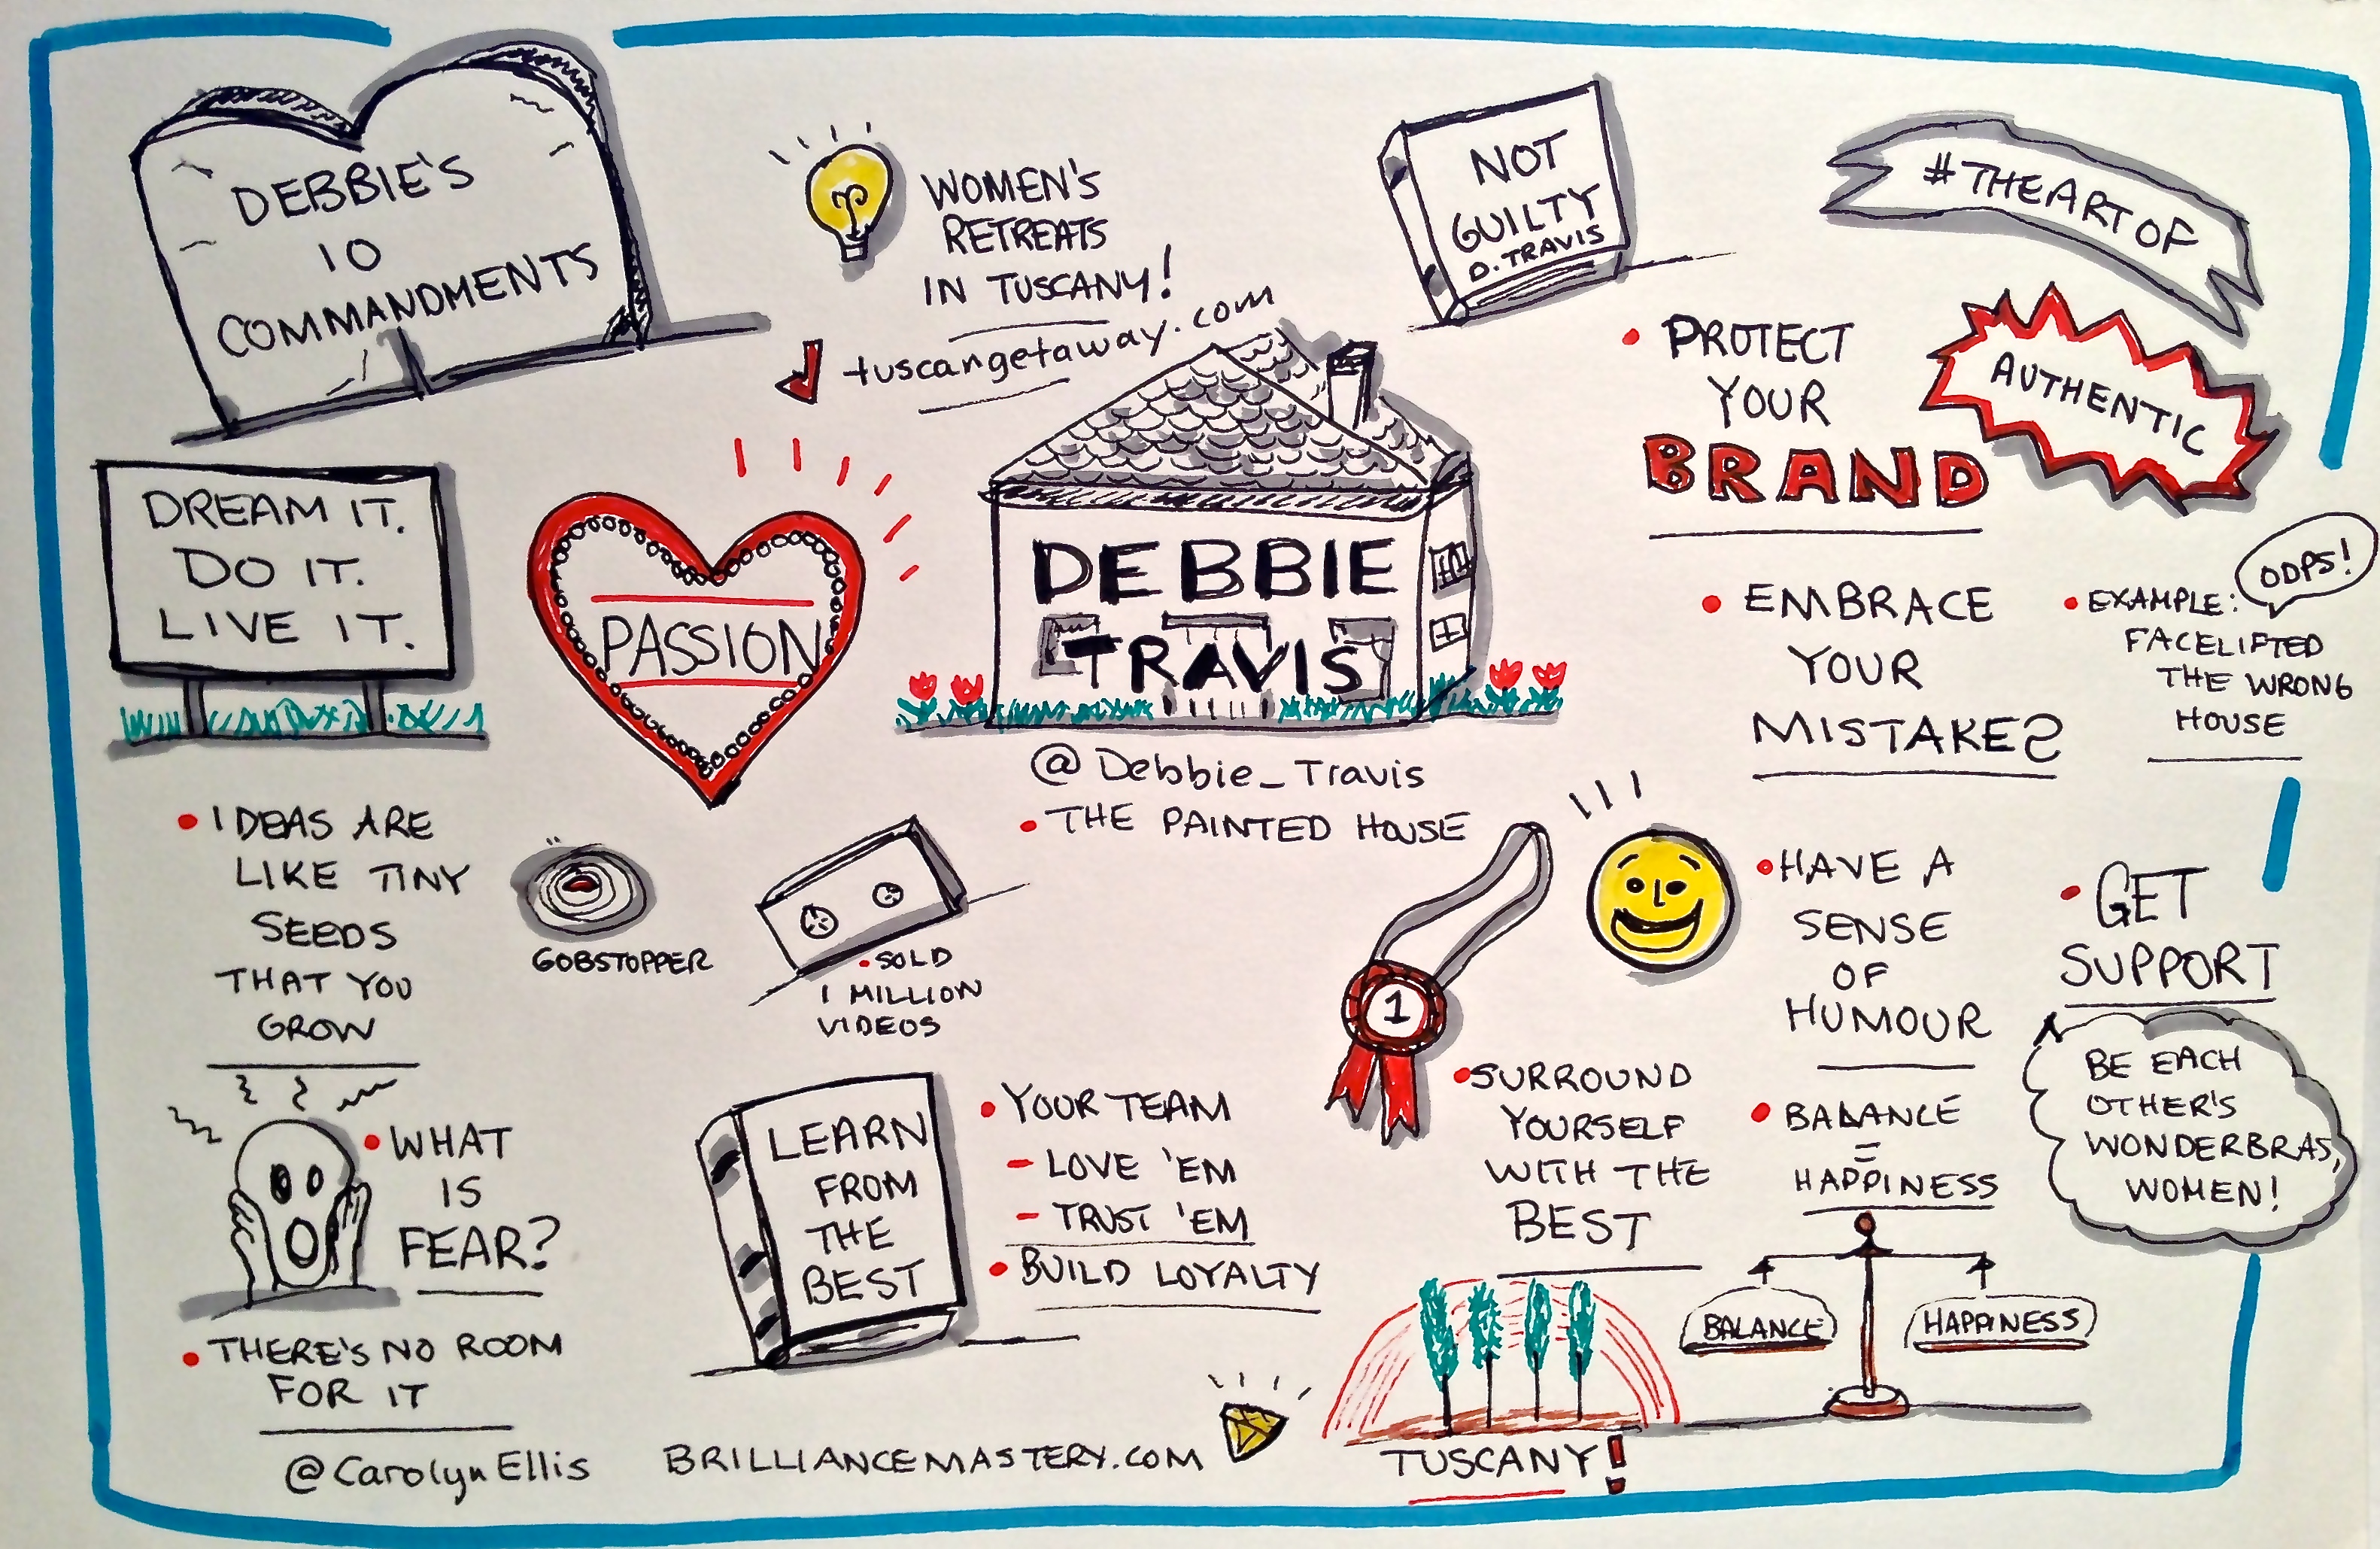 DEBBIE'S
10
COMMANDMENTS
WOMEN'S
RETREATS
IN TUSCANY!
tuscangetaway.com
NOT
GUILTY
D. TRAVIS
#THEARTOF
AUTHENTIC
• PROTECT
YOUR
BRAND
DREAM IT.
DO IT.
LIVE IT.
PASSION
DEBBIE
TRAVIS
@Debbie_Travis
• THE PAINTED HOUSE
• EMBRACE
YOUR
MISTAKES
OOPS!
• EXAMPLE:
FACELIFTED
THE WRONG
HOUSE
• IDEAS ARE
LIKE TINY
SEEDS
THAT YOU
GROW
GOBSTOPPER
• SOLD
1 MILLION
VIDEOS
1
• HAVE A
SENSE
OF
HUMOUR
• GET
SUPPORT
BE EACH
OTHER'S
WONDERBRAS,
WOMEN!
• WHAT
IS
FEAR?
• THERE'S NO ROOM
FOR IT
LEARN
FROM
THE
BEST
• YOUR TEAM
- LOVE 'EM
- TRUST 'EM
• BUILD LOYALTY
• SURROUND
YOURSELF
WITH THE
BEST
• BALANCE
=
HAPPINESS
BALANCE
HAPPINESS
TUSCANY!
@CarolynEllis
BRILLIANCEMASTERY.COM